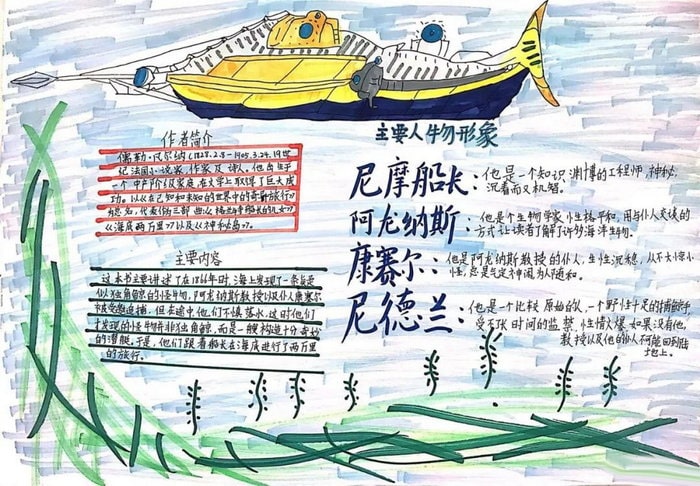 作者简介
儒勒·凡尔纳(1828.2.8-1905.3.24.19世
纪法国小说家,作家及诗人。他出生于
一个中产阶级家庭,在文学上取得了巨大成
功。以《在已知和未知的世界中的奇异旅行》
为总名,代表作为三部曲《格兰特船长的儿女》
《海底两万里》以及《神秘岛》。
主要内容
这本书主要讲述了在1866年时,海上发现了一条疑
似独角鲸的怪物,阿龙纳斯教授以及仆人康塞尔
被受邀追捕,但在途中他们不慎落水,这时他们
才发现的怪物并非独角鲸,而是一艘构造十分奇妙
的潜艇。于是,他们跟着船长在海底进行了两万里
的旅行。
主要人物形象
尼摩船长:他是一个知识渊博的工程师,神秘,
沉着而又机智。
阿龙纳斯:他是个生物学家,性格平和,用与仆人交谈的
方式让读者了解了许多海洋生物。
康赛尔:他是阿龙纳斯教授的仆人,生性沉稳,从不大惊小
怪,总是气定神闲,为人随和。
尼德兰:他是一个比较原始的人,一个野性十足的捕鲸手,
受不了长时间的监禁,性情火爆,如果没有他,
教授以及他的仆人不可能回到陆
地上。